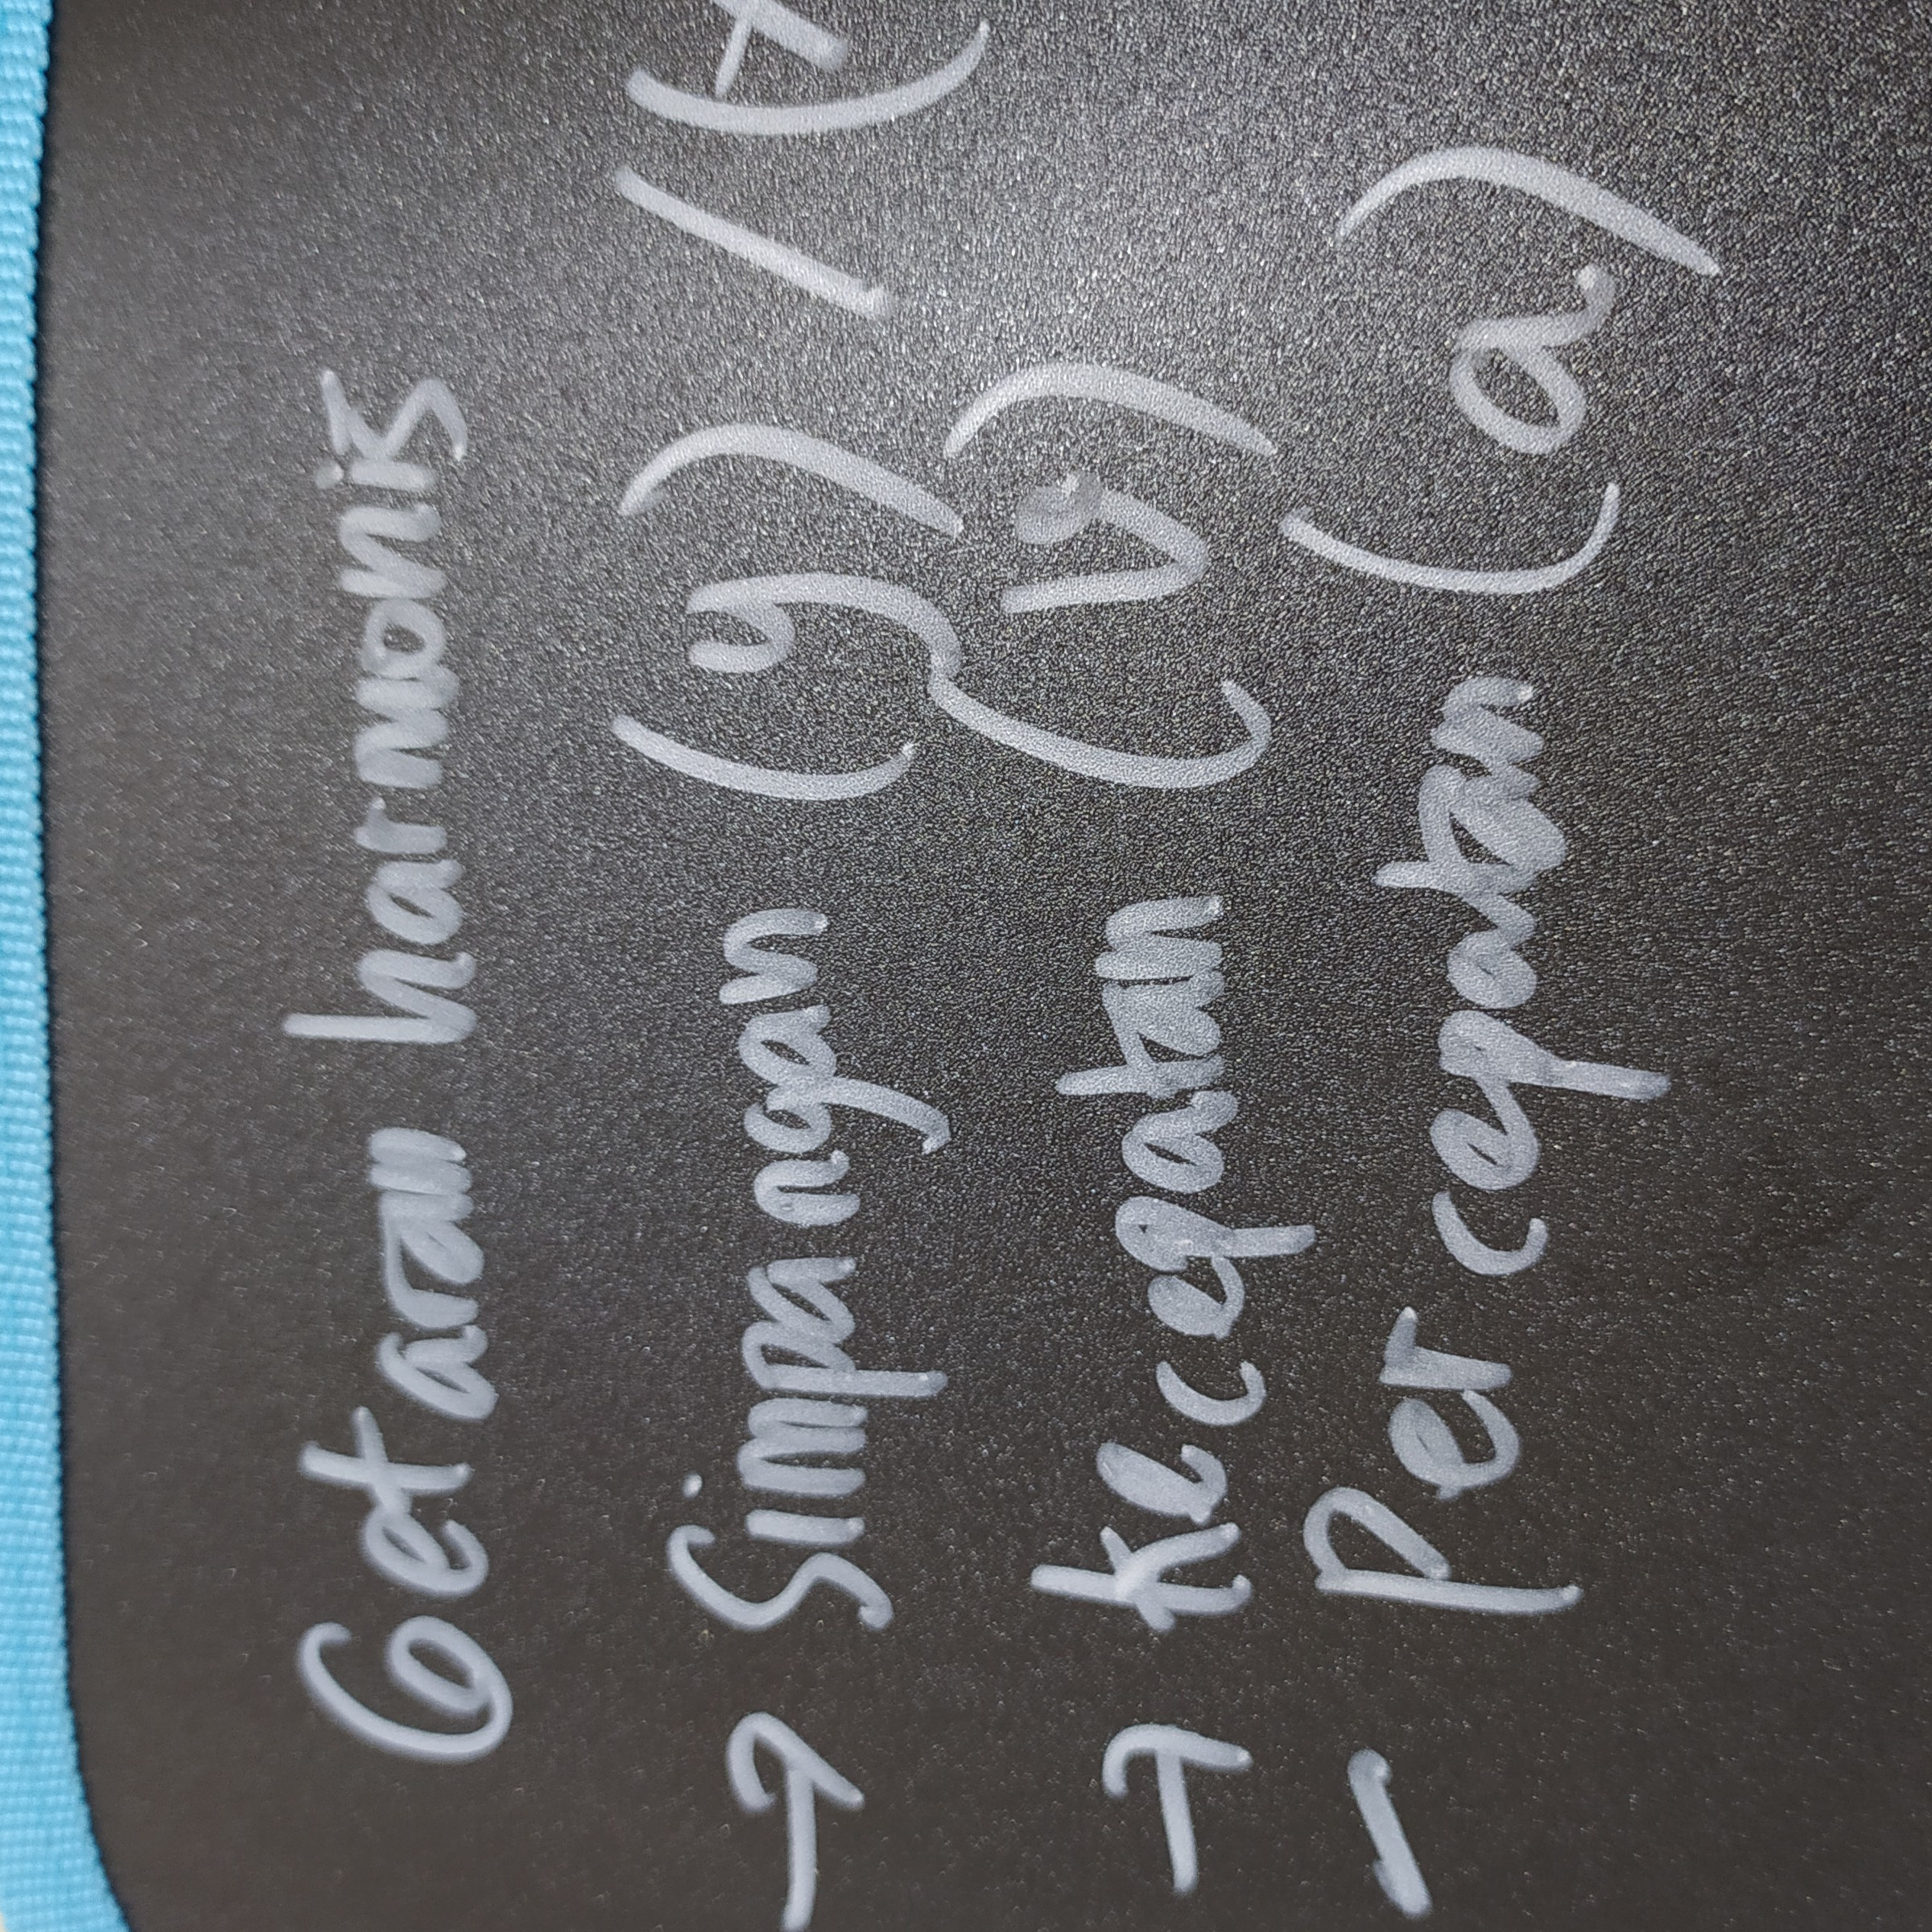 Getaran harmonis
→ Simpangan (y) / (x
→ Kecepatan (v)
- Percepatan (a)